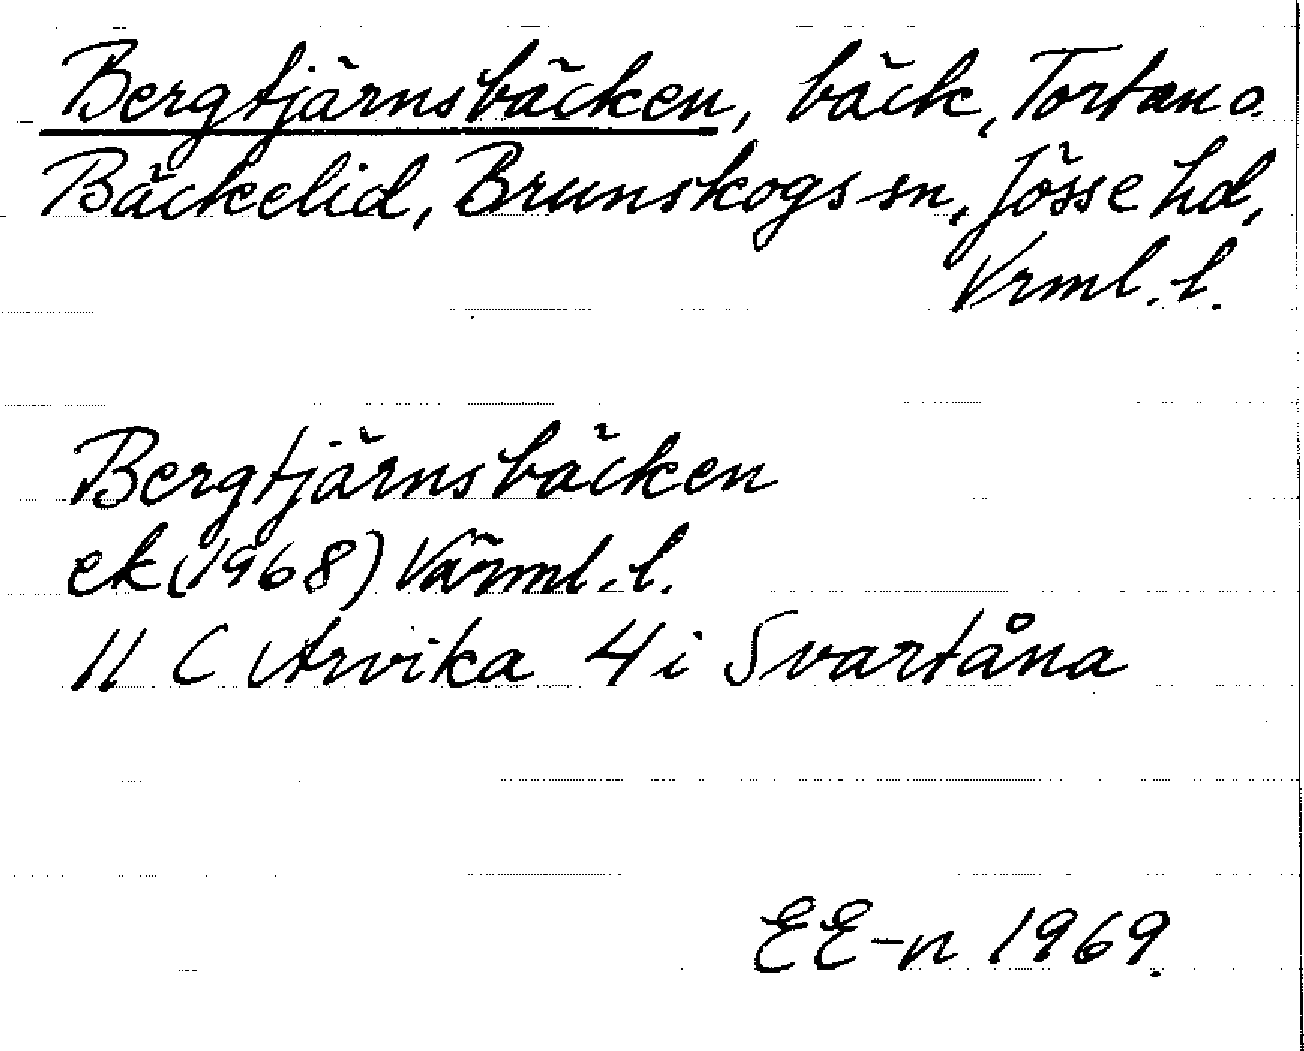 Bergtjärnsbäcken, bäck, Tortan o.
Bäckelid, Brunskogs sn, Jösse hd,
Vrml. l.
Bergtjärnsbäcken
ek (1968) Värml. l.
11 C Arvika 4 i Svartåna
EE-n 1969.